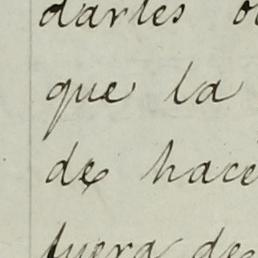 darles o
que la
de hace
fuera de